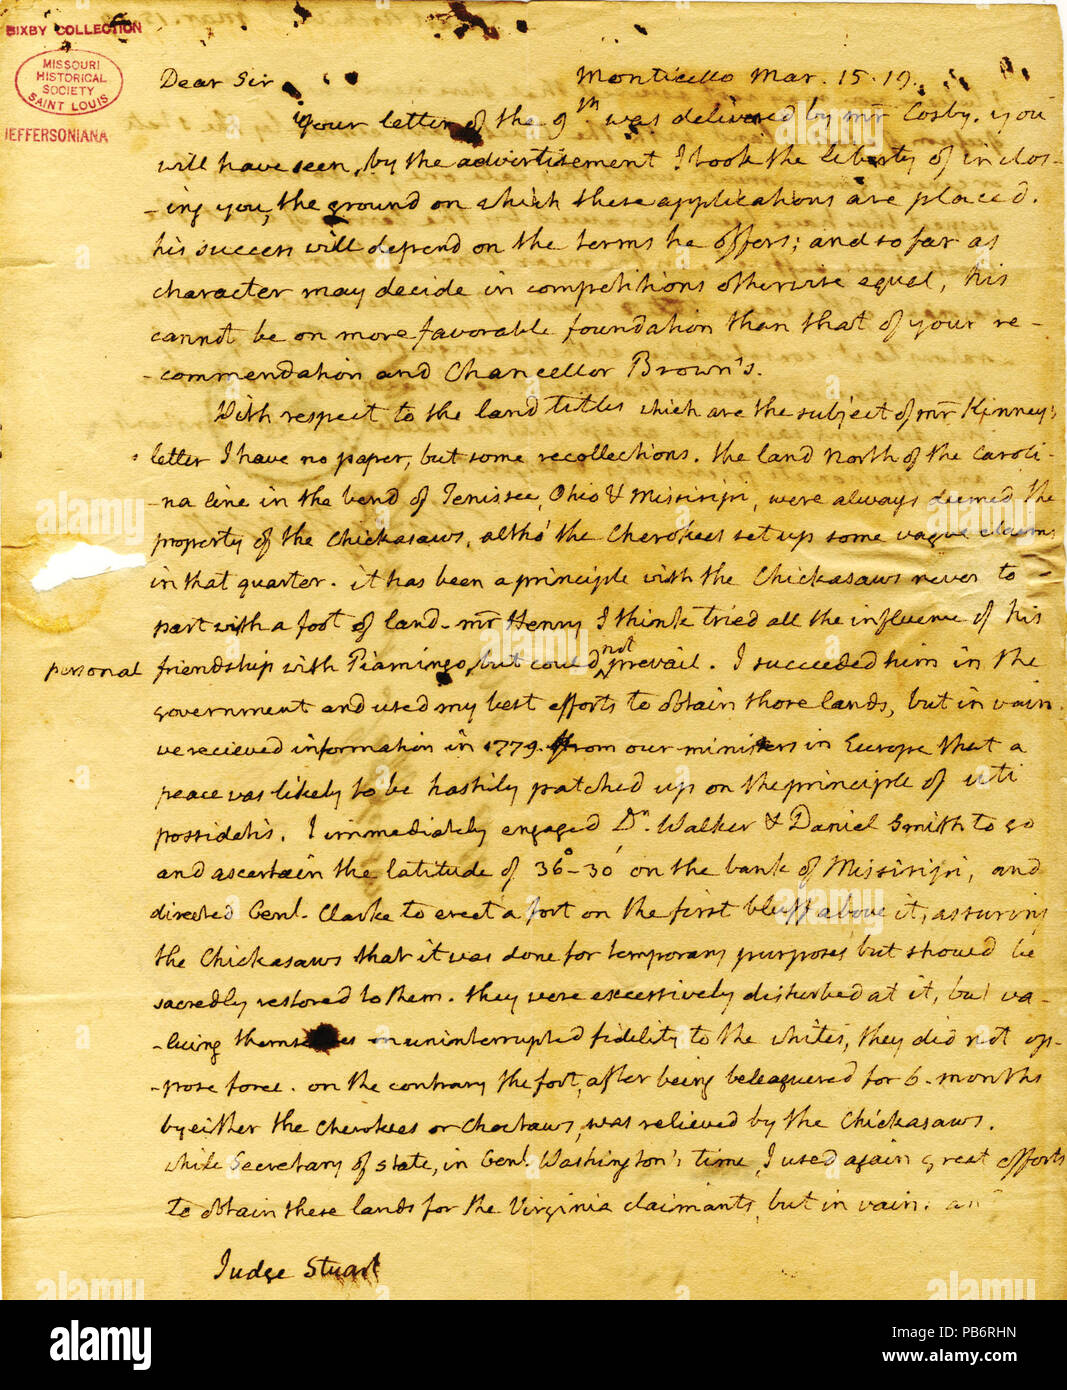 BIXBY COLLECTION
MISSOURI
HISTORICAL
SOCIETY
SAINT LOUIS
JEFFERSONIANA
Dear Sir Monticello Mar. 15. 19.
Your letter of the 9th was delivered by mr Cosby. you
will have seen, by the advertisement I took the liberty of inclos-
-ing you, the ground on which these applications are placed.
his success will depend on the terms he offers; and so far as
character may decide in competitions otherwise equal, his
cannot be on more favorable foundation than that of your re-
-commendation and Chancellor Brown's.
With respect to the land titles which are the subject of mr Kinney's
letter I have no paper, but some recollections. the land North of the Caroli-
-na line in the bend of Tenissee, Ohio & Missisipi, were always deemed the
property of the Chickasaws, altho' the Cherokees set up some vague claims
in that quarter. it has been a principle with the Chickasaws never to
part with a foot of land. mr Henry I think tried all the influence of his
personal friendship with Piamingo, but could not prevail. I succeeded him in the
government and used my best efforts to obtain those lands, but in vain.
we recieved information in 1779. from our ministers in Europe that a
peace was likely to be hastily patched up on the principle of uti
possidetis. I immediately engaged Dr. Walker & Daniel Smith to go
and ascertain the latitude of 36°-30' on the bank of Missisipi, and
directed Genl. Clarke to erect a fort on the first bluff above it, assuring
the Chickasaws that it was done for temporary purposes but should be
sacredly restored to them. they were excessively disturbed at it, but va-
-luing themselves on uninterrupted fidelity to the whites, they did not op-
-pose force. on the contrary the fort, after being beleaguered for 6. months
by either the Cherokees or Choctaws, was relieved by the Chickasaws.
while Secretary of state, in Genl. Washington's time, I used again great efforts
to obtain these lands for the Virginia claimants, but in vain.
Judge Stuart
alamy
Image ID: PB6RHN
www.alamy.com